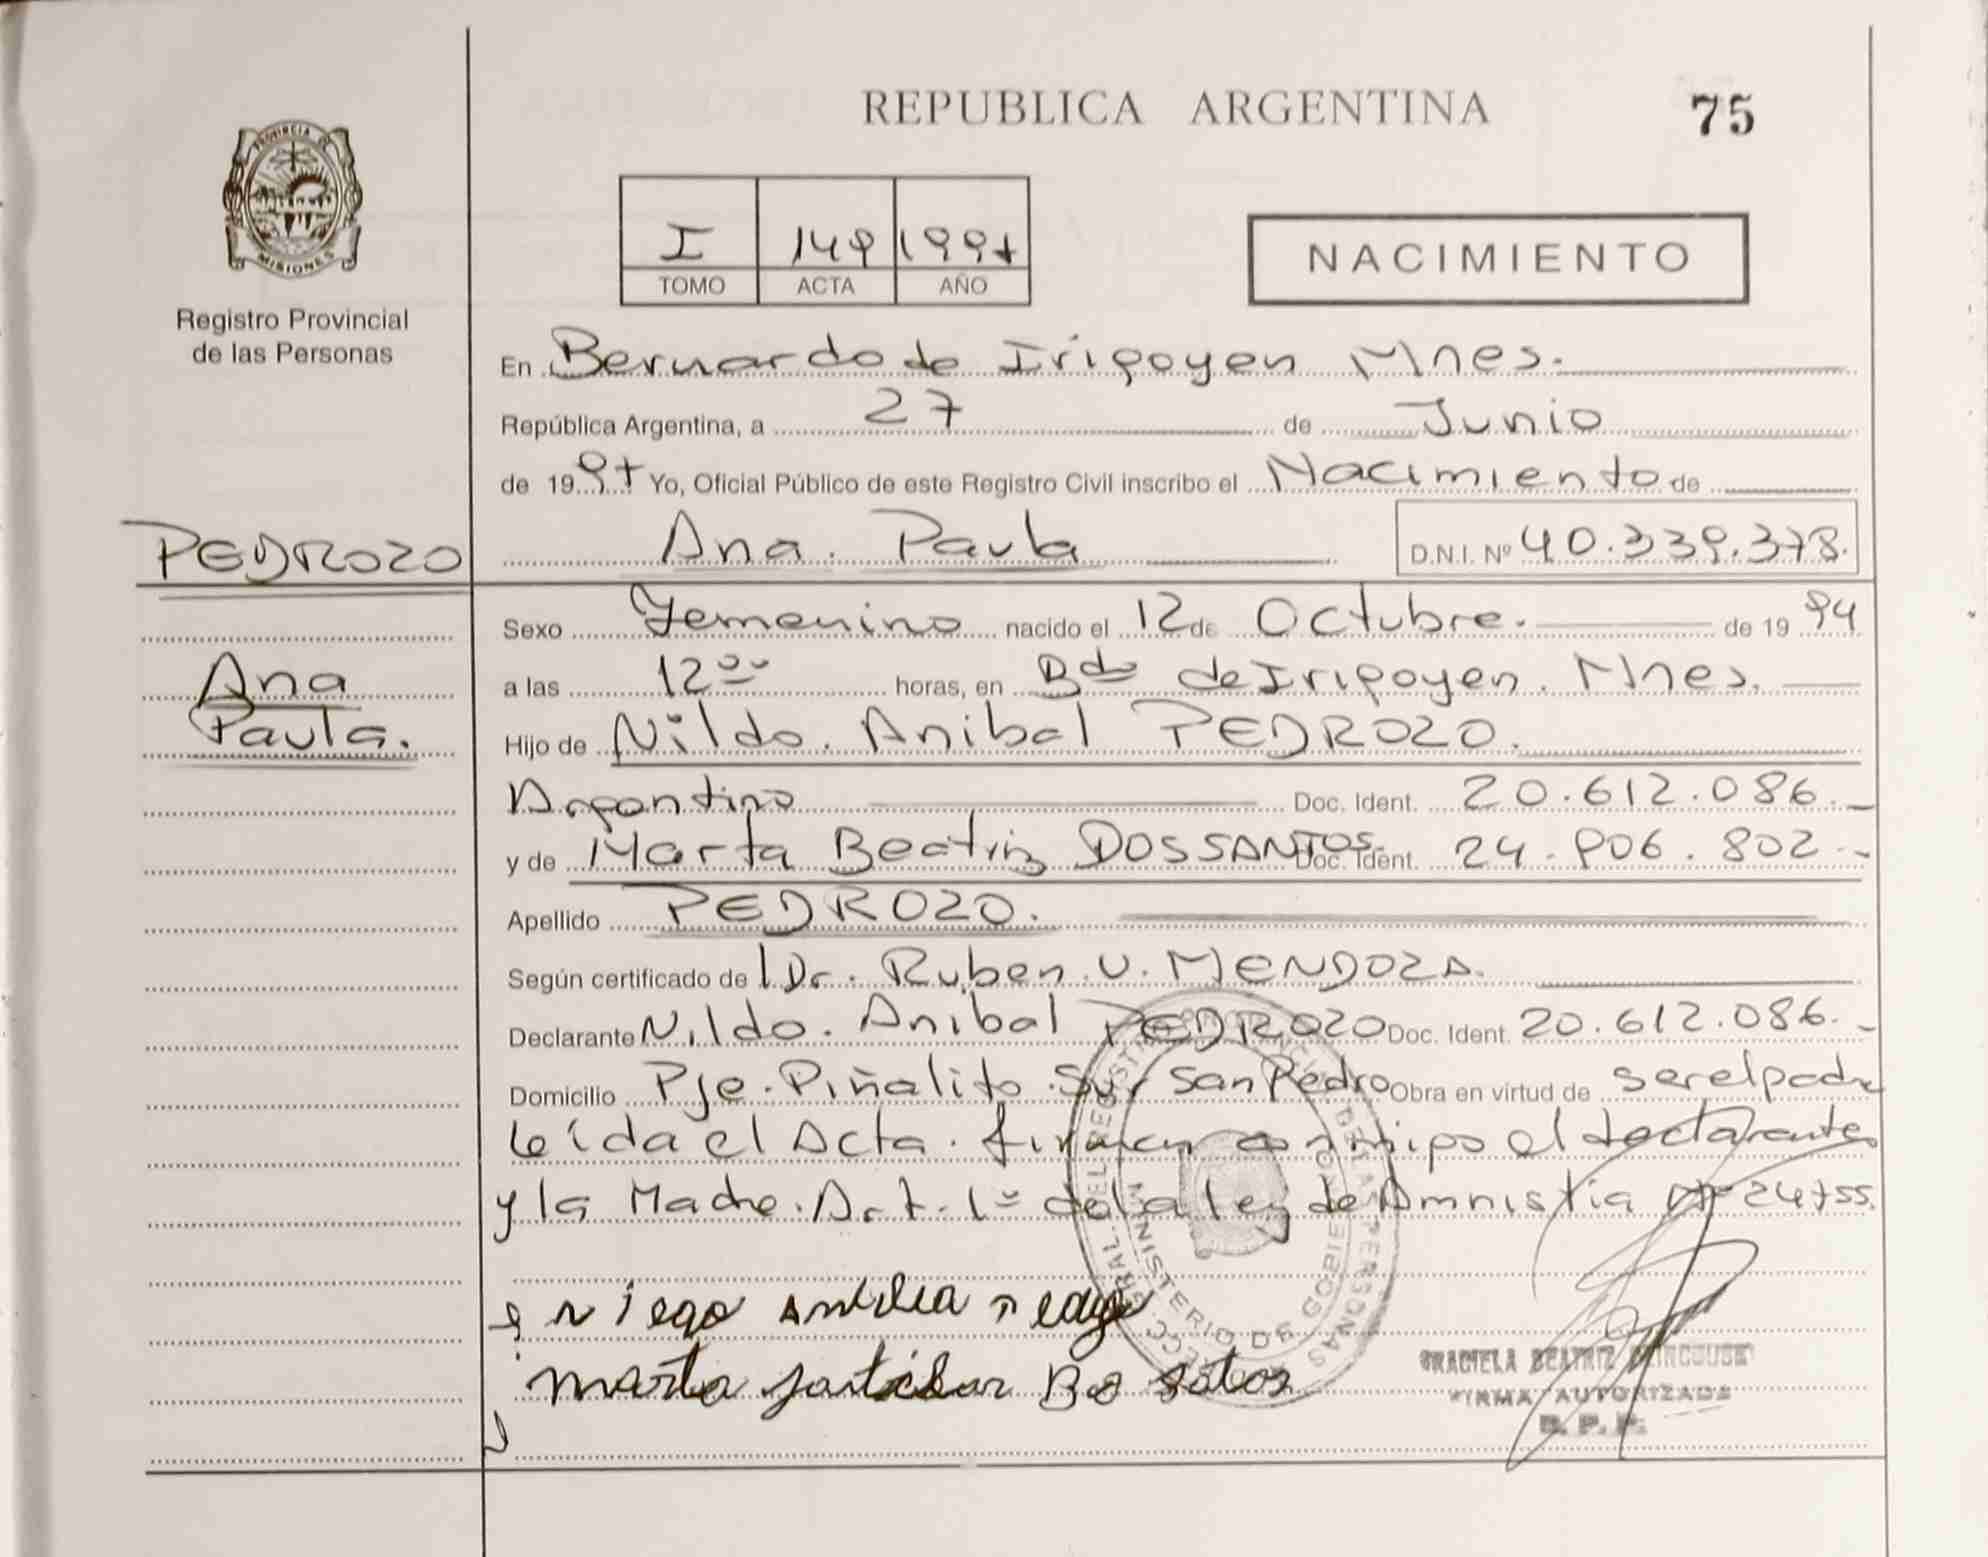 REPUBLICA ARGENTINA
75
PROVINCIA DE
MISIONES
Registro Provincial
de las Personas
I 149 1997
TOMO ACTA AÑO
NACIMIENTO
En Bernardo de Irigoyen Mnes.
República Argentina, a 27 de Junio
de 1997 Yo, Oficial Público de este Registro Civil inscribo el Nacimiento de
PEDROZO
Ana Paula
D.N.I. Nº 40.339.378.
Sexo Femenino nacido el 12 de Octubre. de 1994
Ana
Paula.
a las 12 horas, en Bdo de Irigoyen. Mnes.
Hijo de Nildo. Anibal PEDROZO.
Argentino Doc. Ident. 20.612.086.
y de Marta Beatriz DOSSANTOS Doc. Ident. 24.906.802
Apellido PEDROZO.
Según certificado de Dr. Ruben. U. MENDOZA.
Declarante Nildo. Anibal PEDROZO Doc. Ident. 20.612.086.
Domicilio Pje. Piñalito Sur San Pedro Obra en virtud de ser el padre
leída el Acta. firman conmigo el declarante
y la Madre. Art. 1º de la ley de Amnistia Nº 24755.
MINISTERIO DE GOBIERNO
DE LAS PERSONAS
marta
GRACIELA BEATRIZ
FIRMA AUTORIZADA
R. P. P.